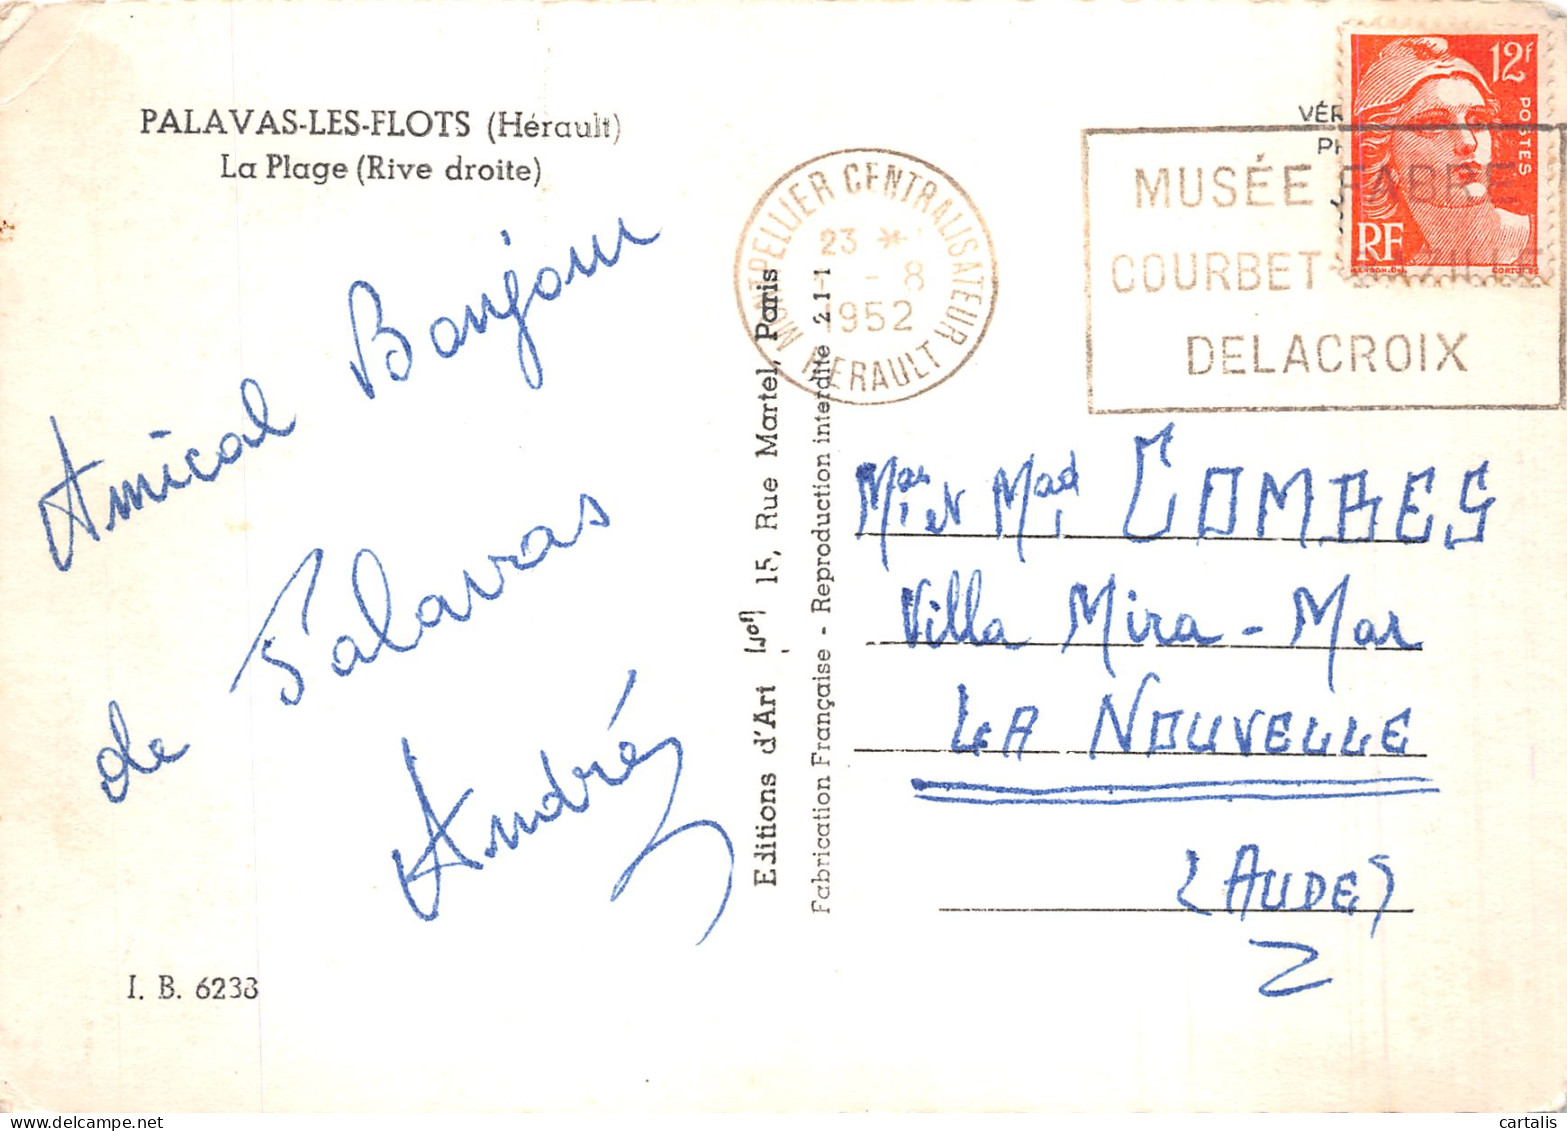 PALAVAS-LES-FLOTS (Hérault)
La Plage (Rive droite)
Amical Bonjour
de Palavas
André
I. B. 6233
Editions d'Art 15, Rue Martel, Paris
Fabrication Française - Reproduction interdite 2.1-1
MONTPELLIER CENTRALISATEUR
23 *
- 8
1952
HERAULT
12F
POSTES
RF
VÉR
PH
MUSÉE FABRE
COURBET
DELACROIX
COMBES
Villa Mira-Mar
LA NOUVELLE
(AUDE)
cartalis